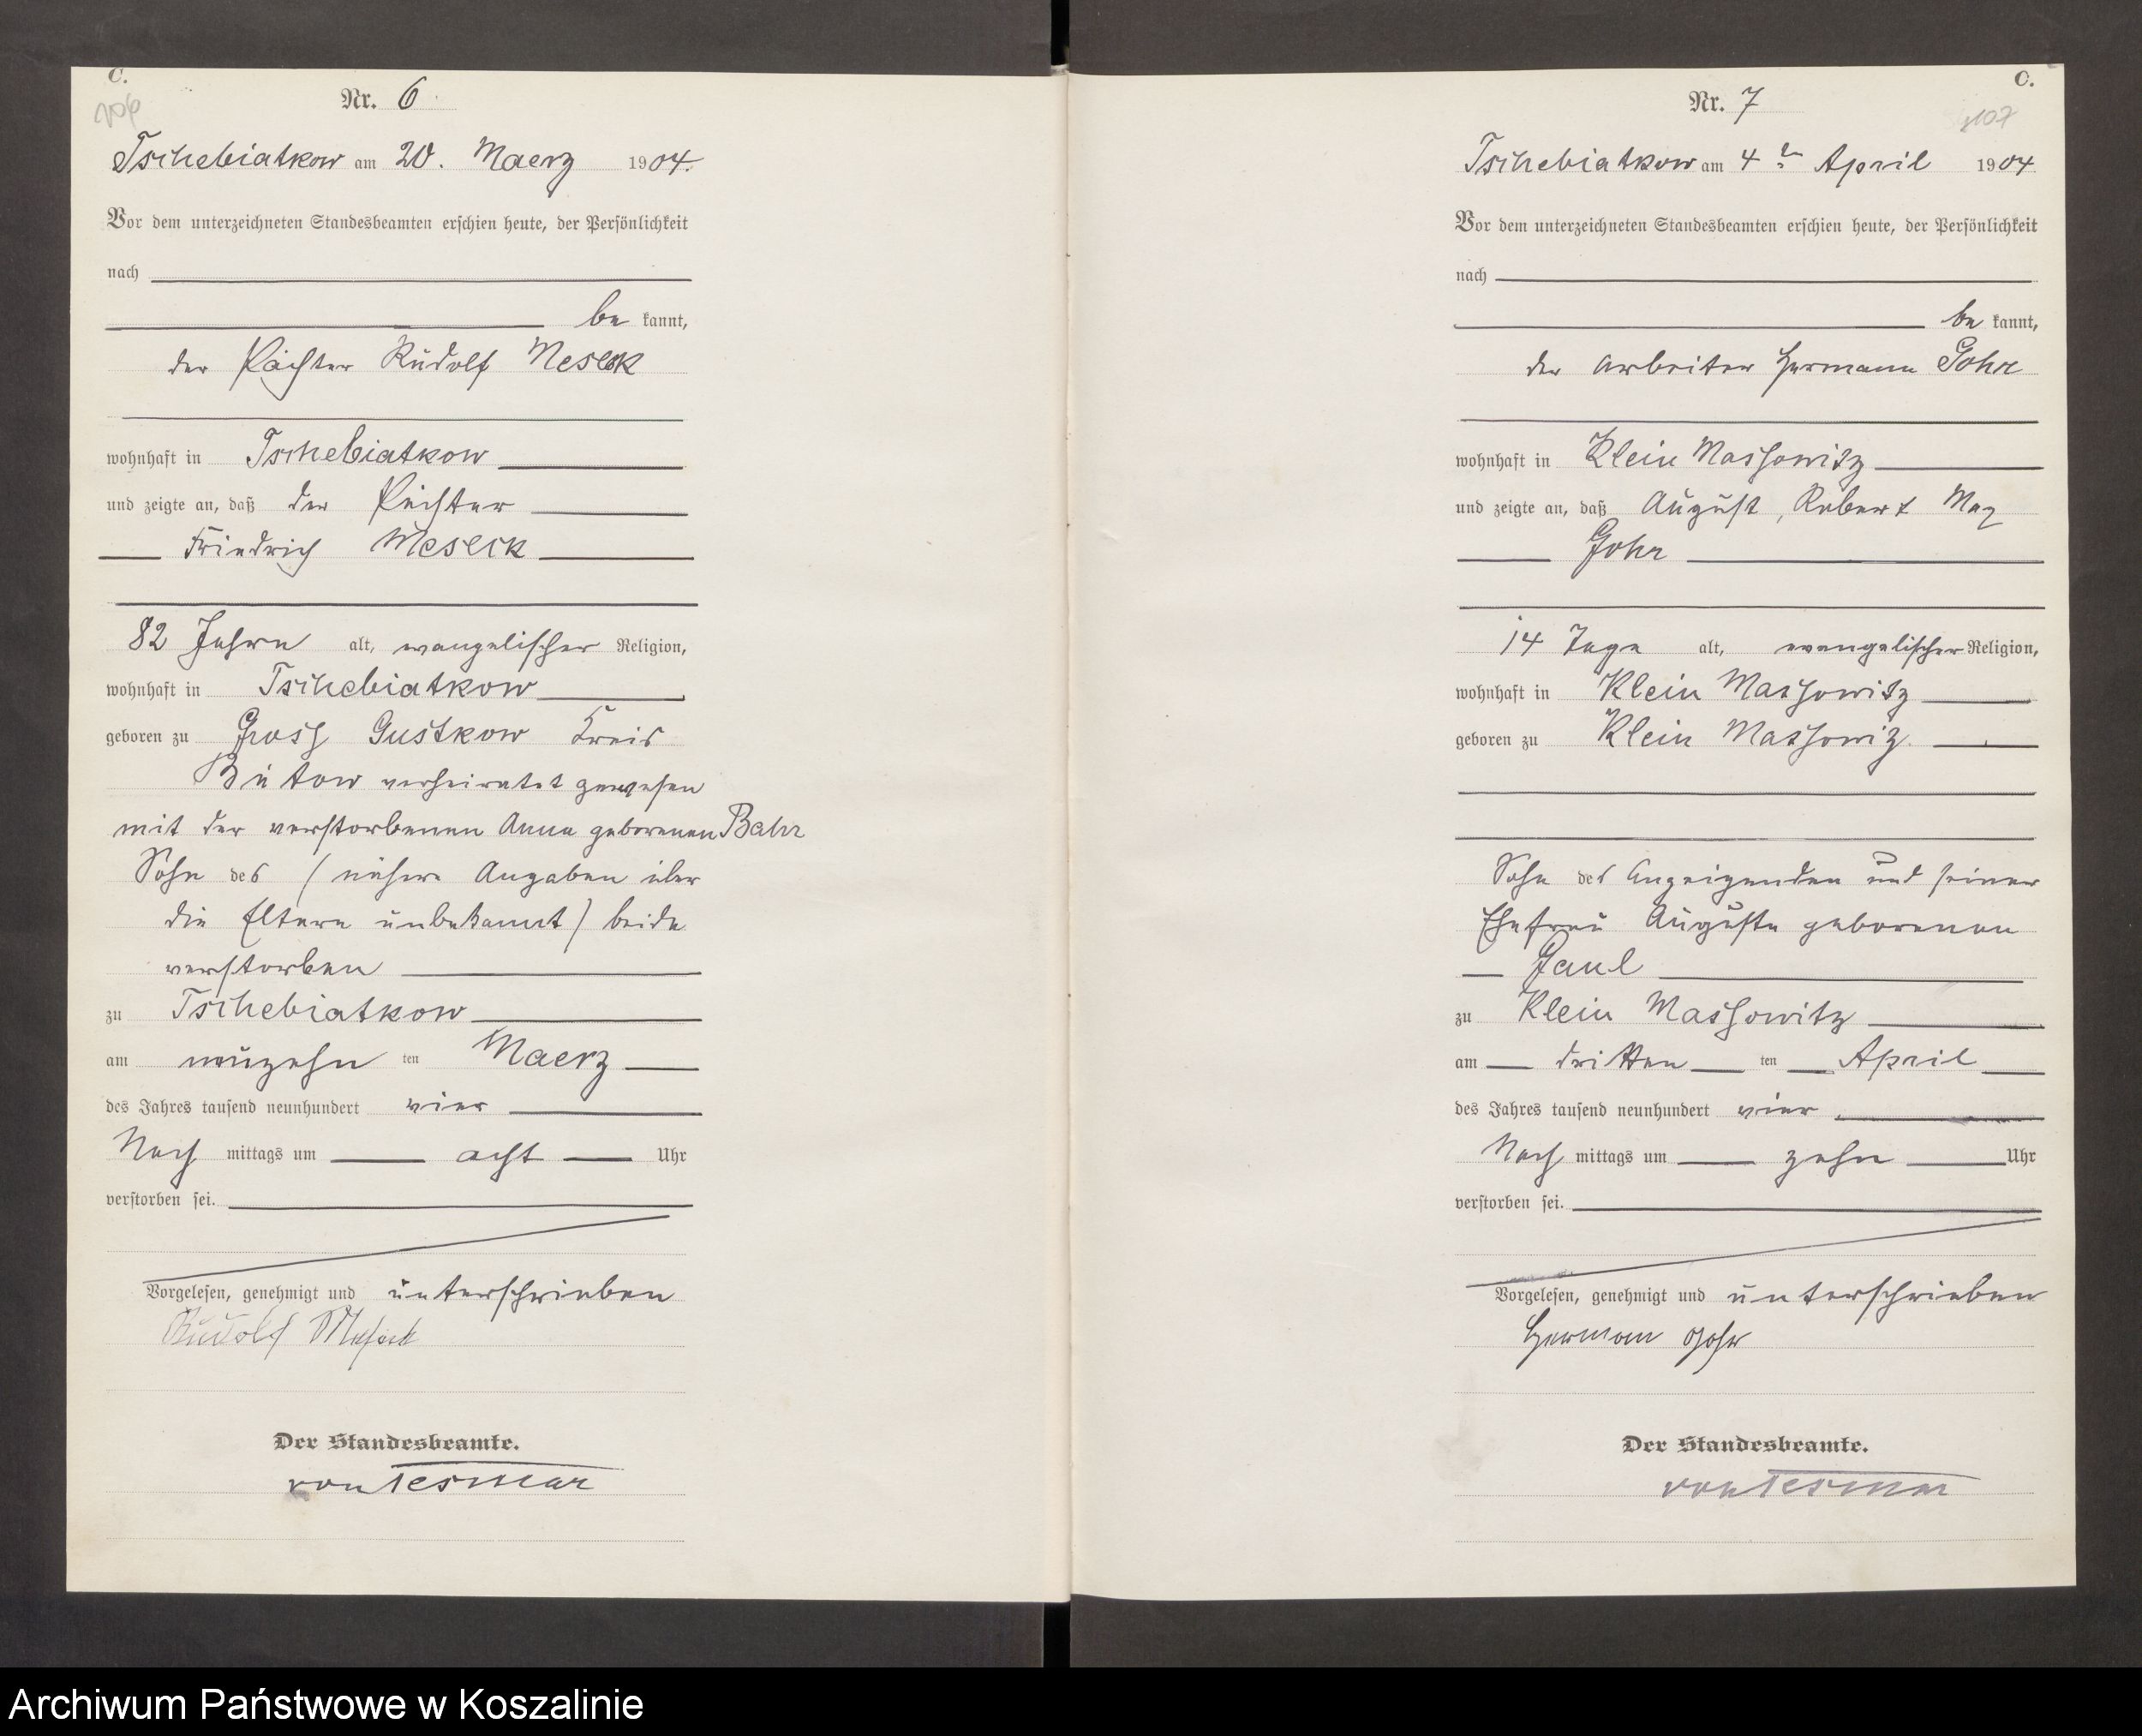 C.
106
Nr. 6
Tschebiatkow am 20. Maerz 1904.
Vor dem unterzeichneten Standesbeamten erschien heute, der Persönlichkeit
nach
be kannt,
der Pächter Rudolf Meseck
wohnhaft in Tschebiatkow
und zeigte an, daß der Pächter
Friedrich Meseck
82 Jahre alt, evangelischer Religion,
wohnhaft in Tschebiatkow
geboren zu Gross Gustkow Kreis
Bütow verheiratet gewesen
mit der verstorbenen Anna geborenen Bahr
Sohn des (nähere Angaben über
die Eltern unbekannt) beide
verstorben
zu Tschebiatkow
am neunzehn ten Maerz
des Jahres tausend neunhundert vier
Nach mittags um acht Uhr
verstorben sei.
Vorgelesen, genehmigt und unterschrieben
Rudolf Meseck
Der Standesbeamte.
von Tesmar
C.
107
Nr. 7
Tschebiatkow am 4 April 1904
Vor dem unterzeichneten Standesbeamten erschien heute, der Persönlichkeit
nach
be kannt,
der Arbeiter Hermann Gohr
wohnhaft in Klein Massowitz
und zeigte an, daß August, Robert Max
Gohr
14 Tage alt, evangelischer Religion,
wohnhaft in Klein Massowitz
geboren zu Klein Massowiz.
Sohn des Anzeigenden und seiner
Ehefrau Auguste geborenen
zu Klein Massowitz
am dritten ten April
des Jahres tausend neunhundert vier
Nach mittags um zehn Uhr
verstorben sei.
Vorgelesen, genehmigt und unterschrieben
Herman Gohr
Der Standesbeamte.
von Tesmar
Archiwum Państwowe w Koszalinie